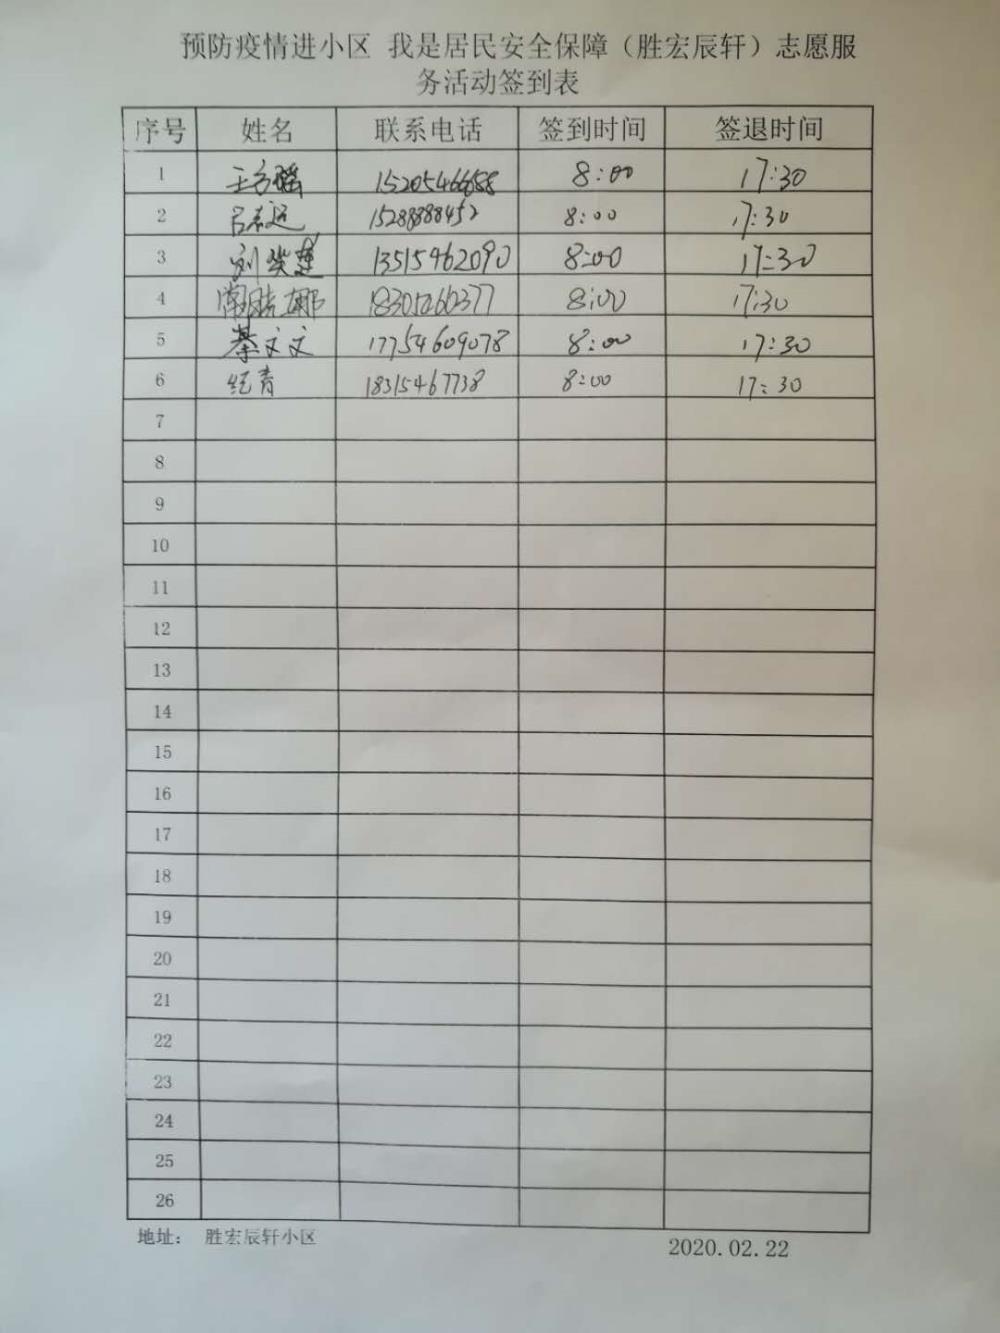 预防疫情进小区 我是居民安全保障（胜宏辰轩）志愿服
务活动签到表
序号 姓名 联系电话 签到时间 签退时间
1 王 15205466688 8:00 17:30
2 吕志远 15288888452 8:00 17:30
3 刘 13515462090 8:00 17:30
4 18305460377 8:00 17:30
5 綦文文 17754609078 8:00 17:30
6 纪青 18315467738 8:00 17:30
7
8
9
10
11
12
13
14
15
16
17
18
19
20
21
22
23
24
25
26
地址： 胜宏辰轩小区
2020.02.22